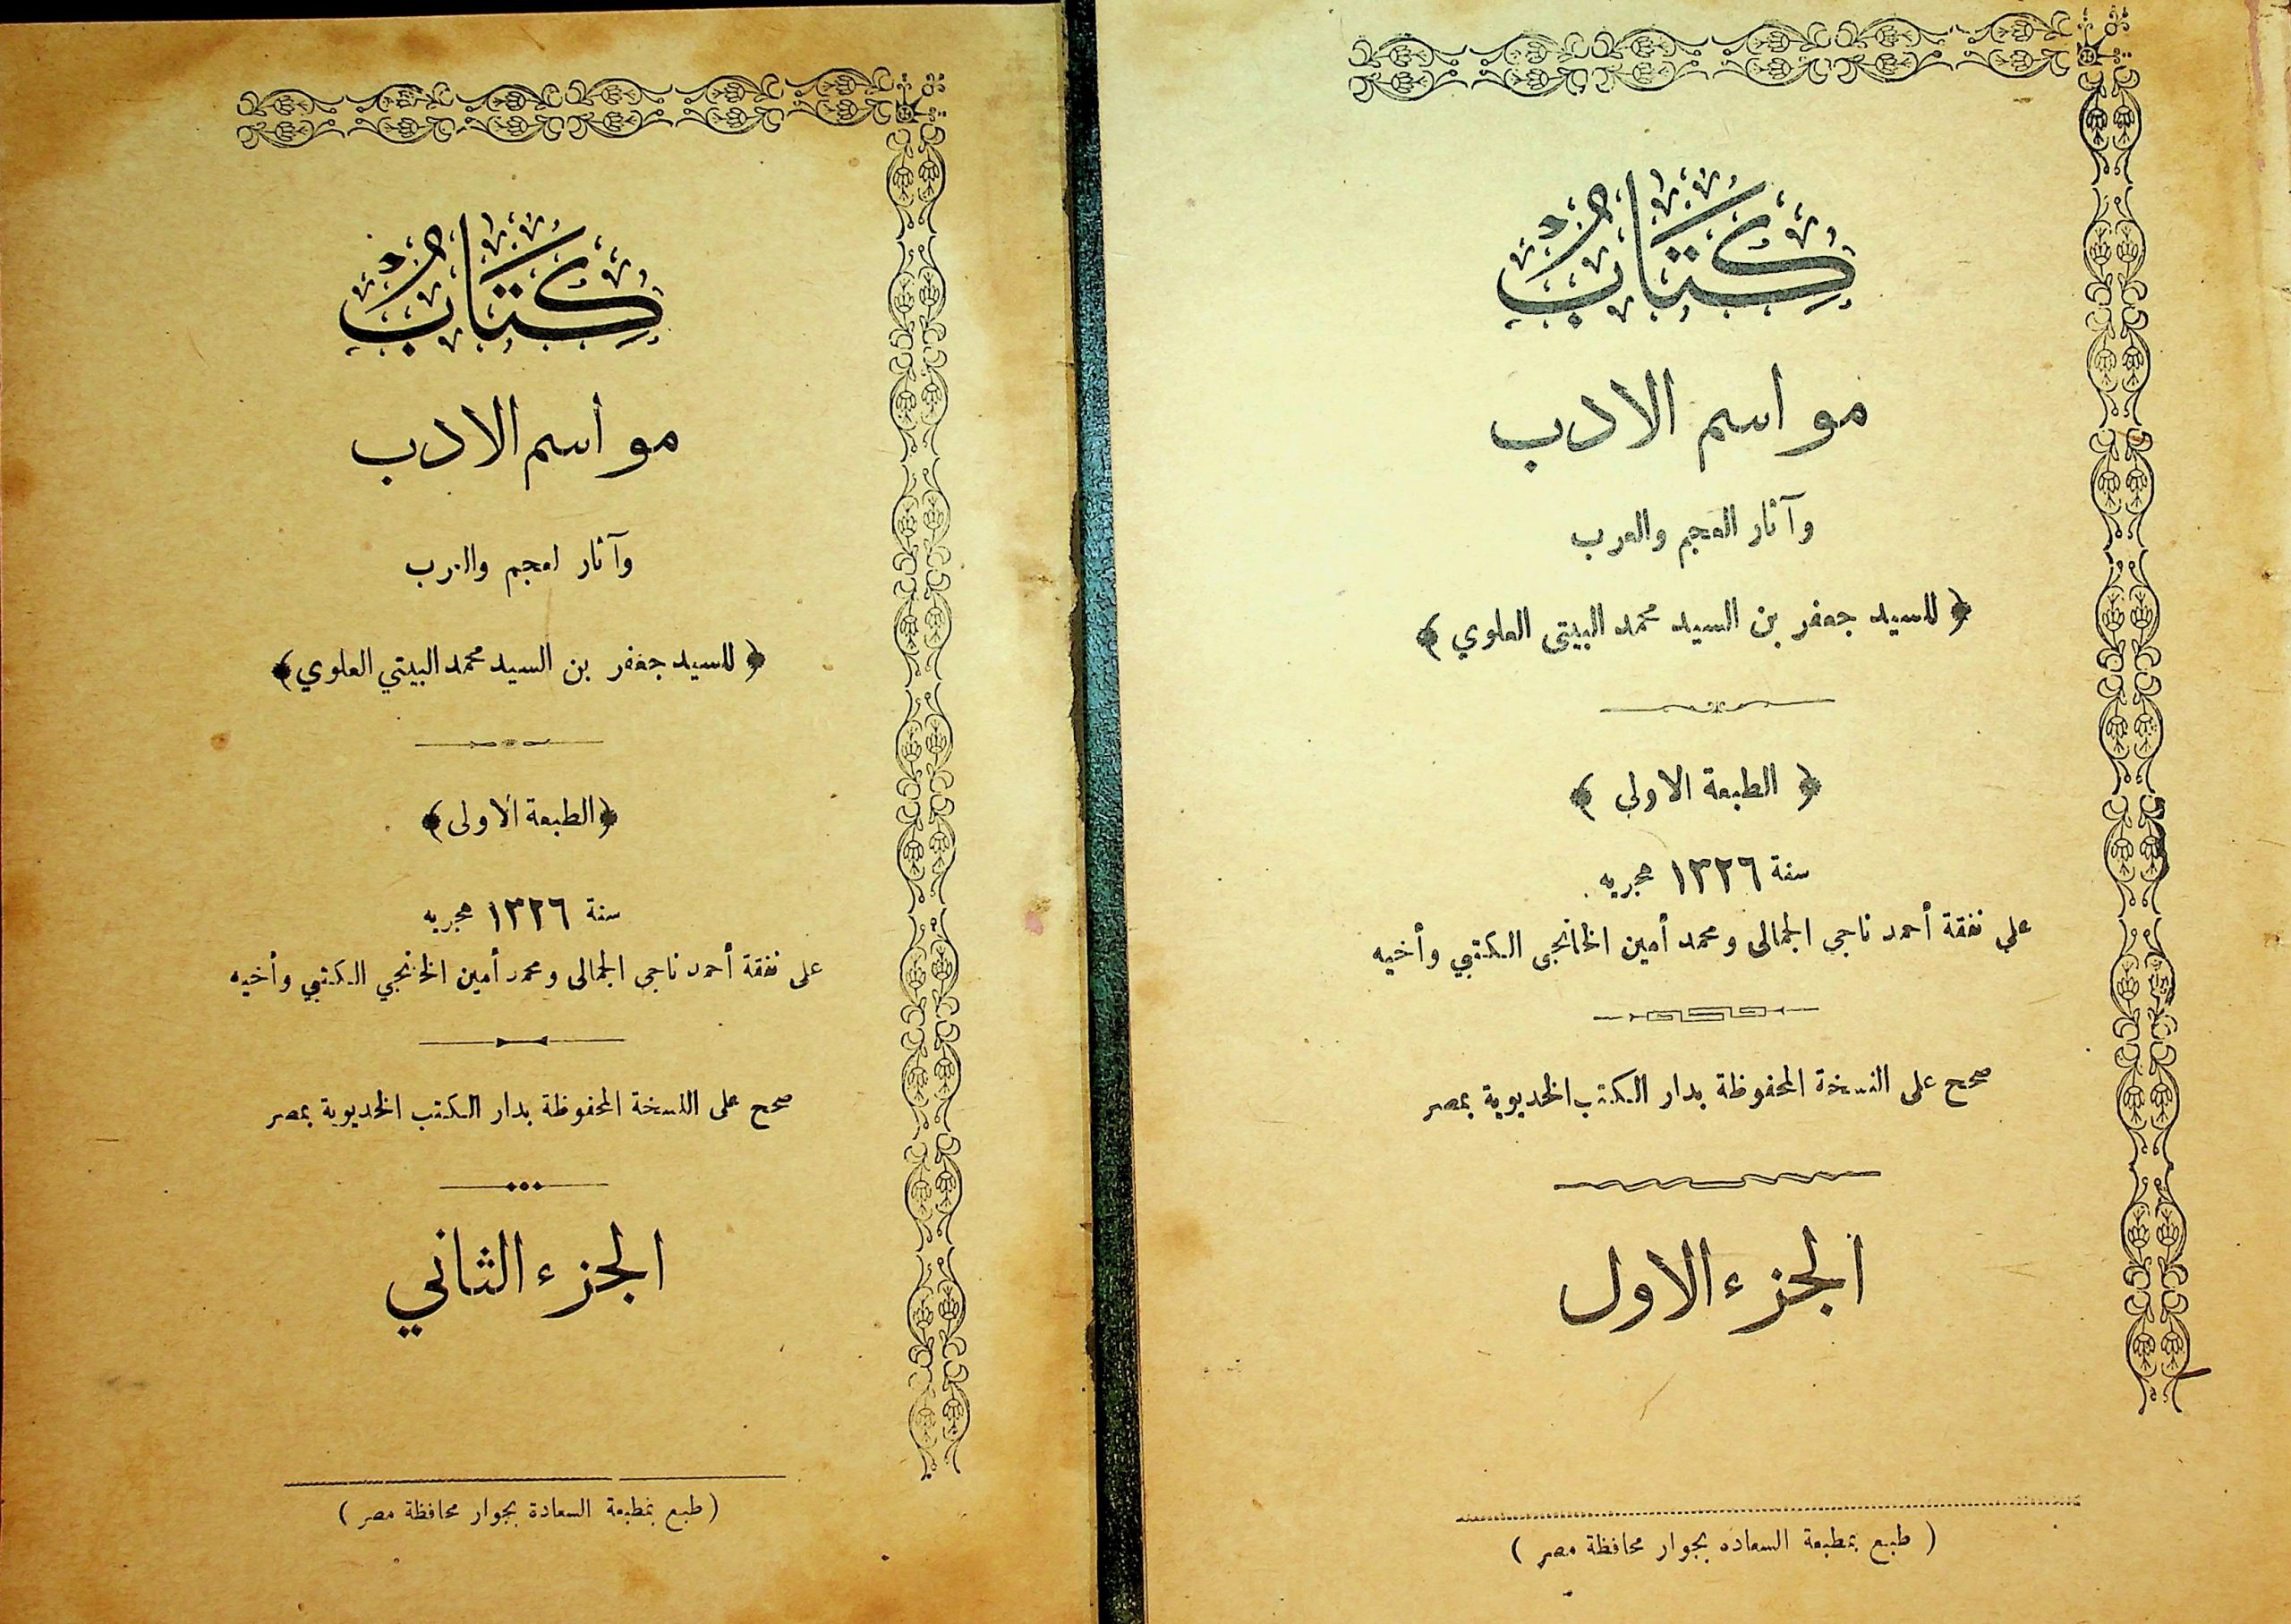 كتاب
مواسم الادب
وآثار العجم والعرب
﴿ للسيد جعفر بن السيد محمد البيتى العلوي ﴾
﴿ الطبعة الاولى ﴾
سنة ١٣٢٦ هجريه
على نفقة أحمد ناجي الجمالى ومحمد أمين الخانجى الكتبي وأخيه
صحح على النسخة المحفوظة بدار الكتب الخديوية بمصر
الجزء الاول
( طبع بمطبعة السعاده بجوار محافظة مصر )
كتاب
مواسم الادب
وآثار العجم والعرب
﴿ للسيد جعفر بن السيد محمد البيتي العلوي ﴾
﴿ الطبعة الاولى ﴾
سنة ١٣٢٦ هجريه
على نفقة أحمد ناجي الجمالى ومحمد أمين الخانجي الكتبي وأخيه
صحح على النسخة المحفوظة بدار الكتب الخديوية بمصر
الجزء الثاني
( طبع بمطبعة السعادة بجوار محافظة مصر )